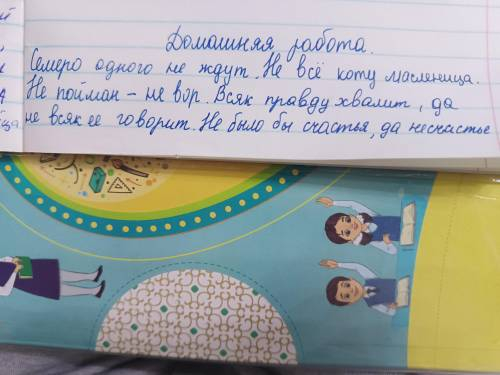 Домашняя работа.
Семеро одного не ждут. Не всё коту масленица.
Не пойман - не вор. Всяк правду хвалит, да
не всяк ее говорит. Не было бы счастья, да несчастье